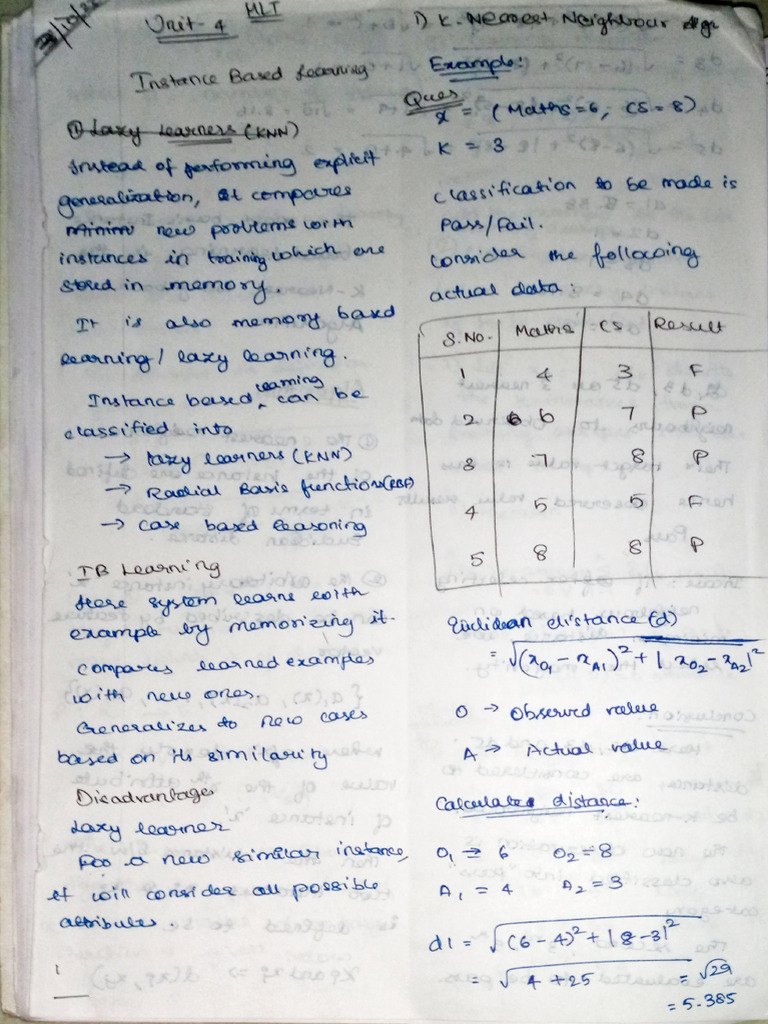 Unit-4 MLT
Instance Based Learning
① Lazy Learners (KNN)
Instead of performing explicit
generalization, it compares
new problems with
instances in training which are
stored in memory.
It is also memory based
learning / lazy learning.
Instance based learning can be
classified into
→ lazy learners (KNN)
→ Radial Basis functions (RBF)
→ Case based Reasoning
IB Learning
Here system learns with
example by memorizing it.
compares learned examples
with new ones.
Generalizes to new cases
based on its similarity
Disadvantages
Lazy learner
For a new similar instance,
it will consider all possible
attributes.
1) K-Nearest Neighbour Algr
Example:
Ques
x = (Maths=6, CS=8)
K = 3
classification to be made is
Pass/Fail.
Consider the following
actual data:
S.No. Maths CS Result
1 4 3 F
2 6 7 P
3 7 8 P
4 5 5 F
5 8 8 P
Euclidean distance (d)
= √(x₀₁ - x_A₁)² + |x₀₂ - x_A₂|²
O → Observed value
A → Actual value
Calculate distance:
O₁ = 6 O₂ = 8
A₁ = 4 A₂ = 3
d1 = √(6-4)² + |8-3|²
= √4 + 25 = √29
= 5.385